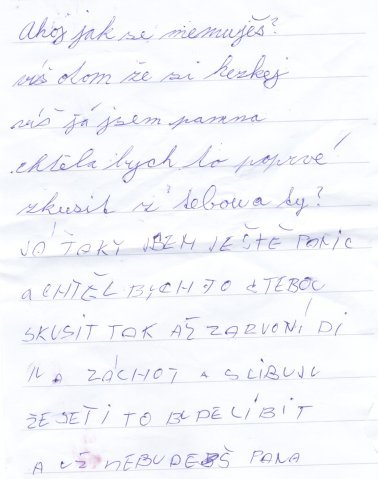 Ahoj jak se memuješ?
víš otom že si hezkej
víš já jsem panna
chtěla bych to poprvé
zkusit s tebou a ty?
JÁ TAKY JSEM JEŠTĚ PANIC
a CHTĚL BYCH TO S TEBOU
SKUSIT TAK AŽ ZAZVONÍ DI
NA ZÁCHOT A SLIBUJU
ŽE SE TI TO BUDE LÍBIT
A UŽ NEBUDEŠ PANA